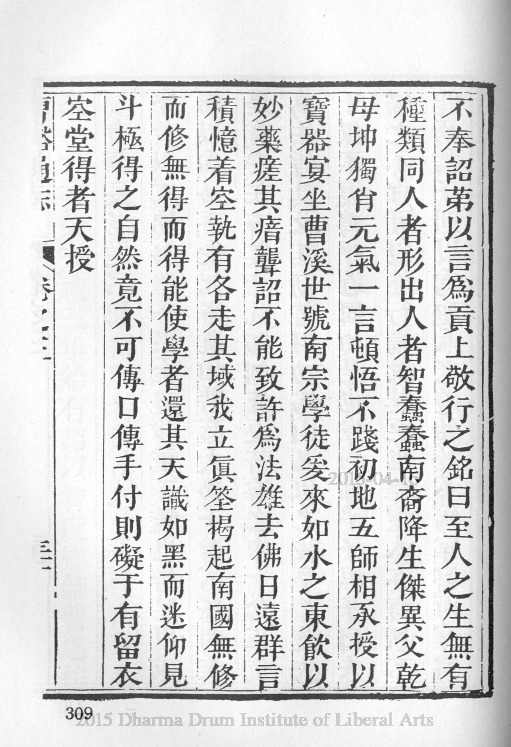 不奉詔苐以言為貢上敬行之銘曰至人之生無有
種類同人者形出人者智蠢蠢南裔降生傑異父乾
母坤獨肖元氣一言頓悟不踐初地五師相承授以
寶器宴坐曹溪世號南宗學徒爰來如水之東飲以
妙藥瘥其瘖聾詔不能致許為法雄去佛日遠群言
積憶着空執有各走其域我立真筌揭起南國無修
而修無得而得能使學者還其天識如黑而迷仰見
斗極得之自然竟不可傳口傳手付則礙于有留衣
空堂得者天授
卷之三
309
2015 Dharma Drum Institute of Liberal Arts